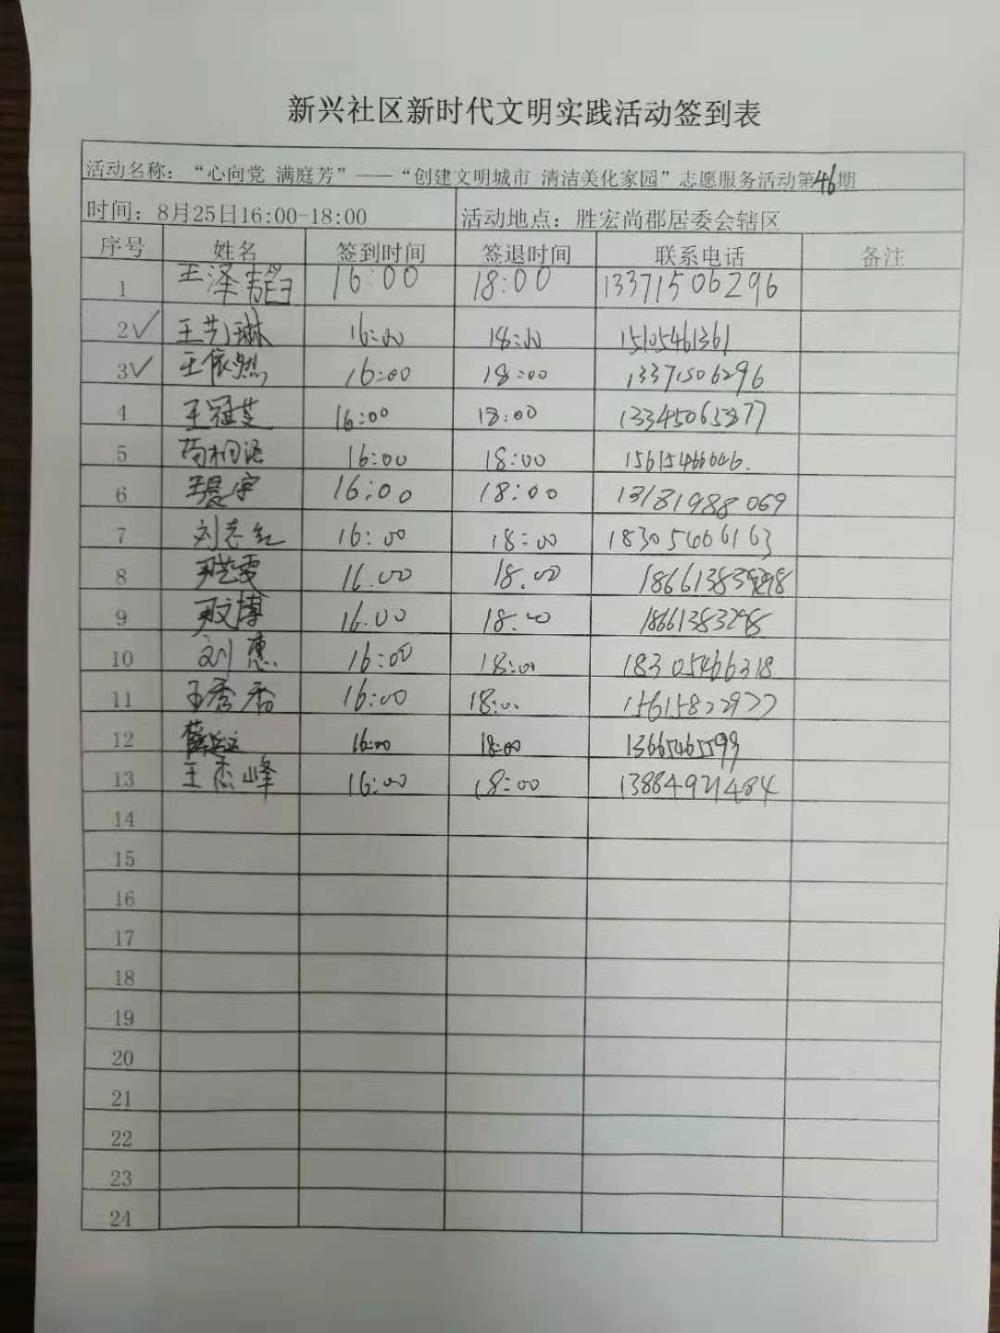 新兴社区新时代文明实践活动签到表
活动名称：“心向党 满庭芳”——“创建文明城市 清洁美化家园”志愿服务活动第46期
时间：8月25日16:00-18:00 活动地点：胜宏尚郡居委会辖区
序号 姓名 签到时间 签退时间 联系电话 备注
1 王泽 16:00 18:00 13371506296
2✓ 王艺琳 16:00 18:00 15105461361
3✓ 王依然 16:00 18:00 13371506296
4 王冠芝 16:00 18:00 13345063377
5 16:00 18:00
6 16:00 18:00 13181988069
7 刘志红 16:00 18:00 18305466163
8 16.00 18.00
9 16.00 18.00 18661383298
10 刘惠 16:00 18:00 18305466318
11 王秀香 16:00 18:00 15615822977
12 16:00 18:00 13665465599
13 王杰峰 16:00 18:00 13884921484
14
15
16
17
18
19
20
21
22
23
24